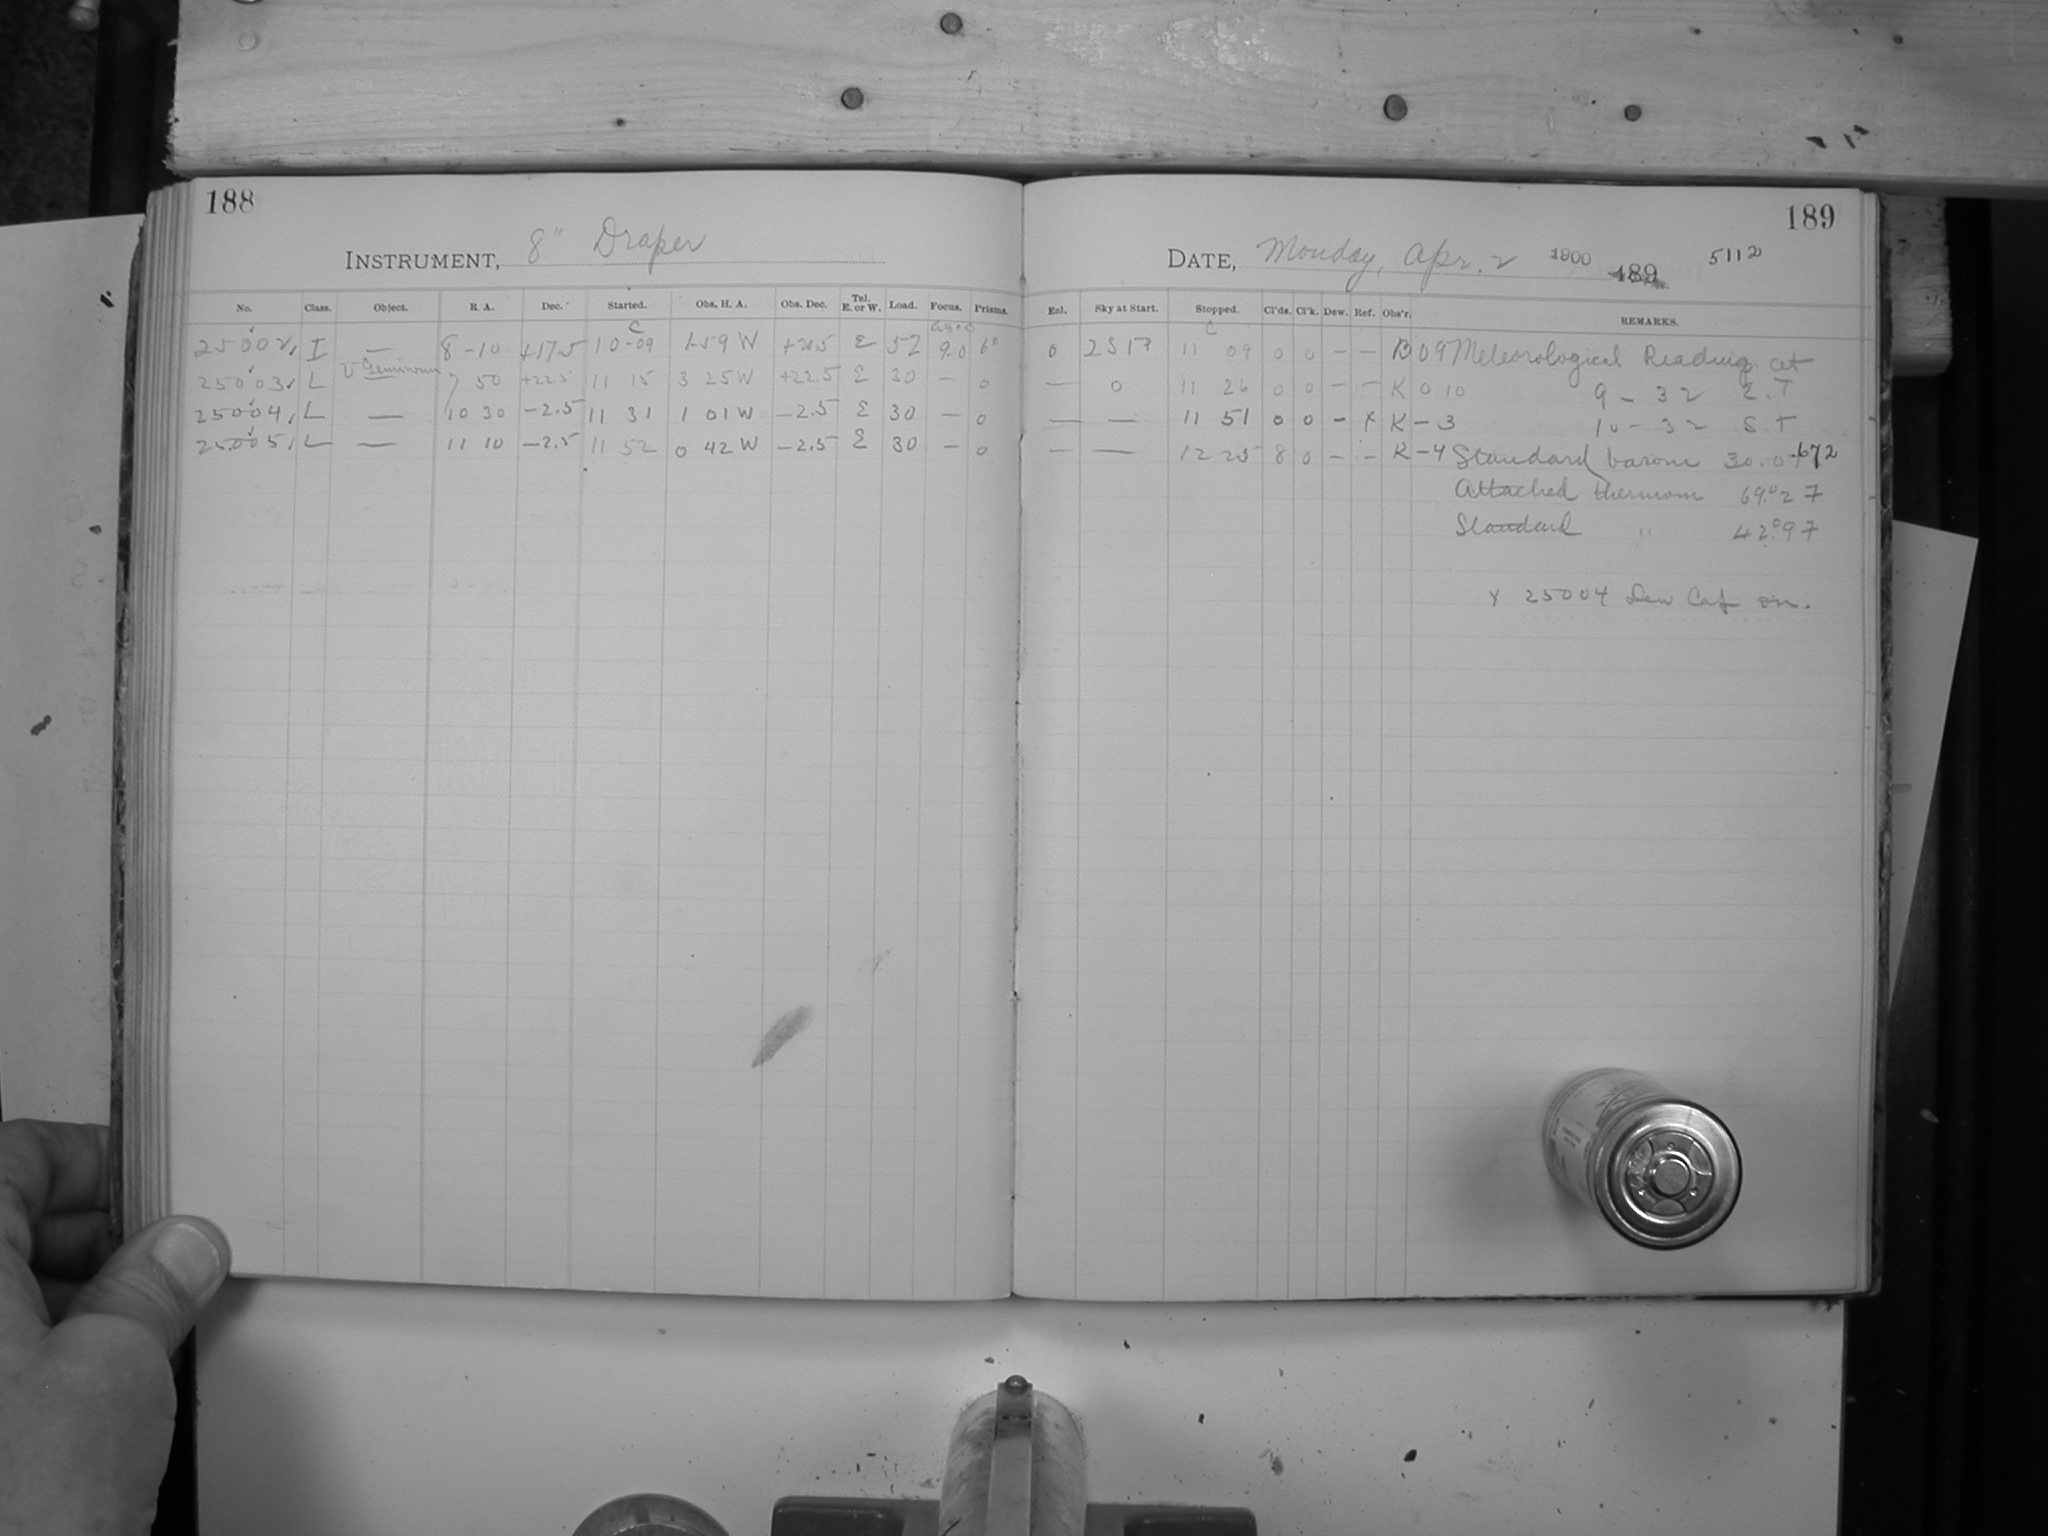 188
189
INSTRUMENT, 8" Draper
DATE, Monday, Apr. 2 1900 189 5112
No. Class. Object. R. A. Dec. Started. Obs. H. A. Obs. Dec. Tel. E. or W. Load. Focus. Prisms. Enl. Sky at Start. Stopped. Cl'ds. Cl'k. Dew. Ref. Obs'r. REMARKS.
25002 I — 8-10 +17.5 10-09 1-59 W E 52 9.0 0 11 09 0 0 — — Meteorological Reading at
25003 L 7 50 +22.5 11 15 3 25 W +22.5 E 30 — 0 — 0 11 26 0 0 — — K 0 10 9 - 32 E.T
25004 L — 10 30 -2.5 11 31 1 01 W -2.5 E 30 — 0 — — 11 51 0 0 — K - 3 10 - 32 S T
25005 L — 11 10 -2.5 11 52 0 42 W -2.5 E 30 — 0 — — 12 25 8 0 — — K - 4 Standard barom 30.0 672
Attached thermom 69.°27
Standard " 42.°97
25004 Dew Cap on.